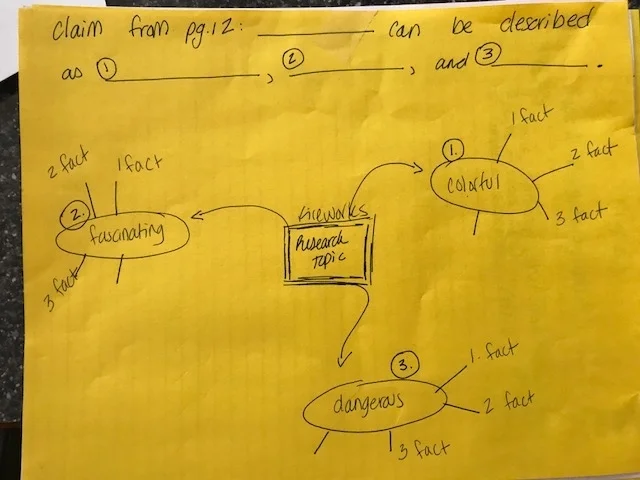 Claim from pg.12: __________ can be described
as ① __________, ② __________, and ③ __________.
1 fact
1.
2 fact
colorful
3 fact
2 fact
1 fact
2.
fascinating
3 fact
fireworks
Research
Topic
3.
1. fact
dangerous
2 fact
3 fact